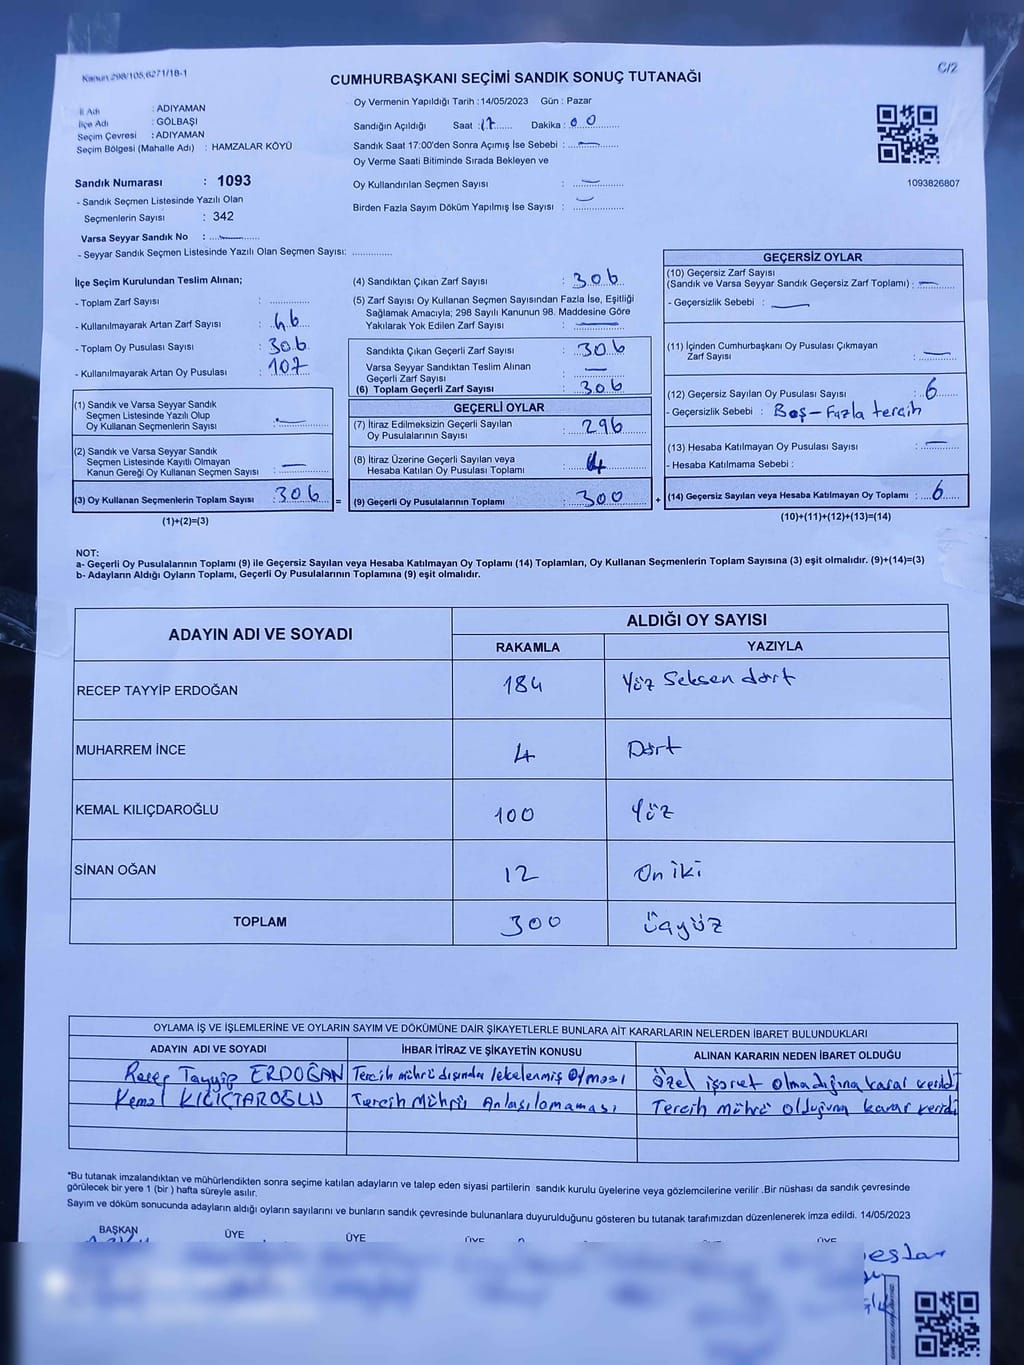 Kanun 298/105,6271/18-1
C/2
CUMHURBAŞKANI SEÇİMİ SANDIK SONUÇ TUTANAĞI
İl Adı : ADIYAMAN
İlçe Adı : GÖLBAŞI
Seçim Çevresi : ADIYAMAN
Seçim Bölgesi (Mahalle Adı) : HAMZALAR KÖYÜ
Sandık Numarası : 1093
- Sandık Seçmen Listesinde Yazılı Olan
Seçmenlerin Sayısı : 342
Varsa Seyyar Sandık No :
- Seyyar Sandık Seçmen Listesinde Yazılı Olan Seçmen Sayısı:
Oy Vermenin Yapıldığı Tarih : 14/05/2023 Gün : Pazar
Sandığın Açıldığı Saat : 17 Dakika : 00
Sandık Saat 17:00'den Sonra Açımış İse Sebebi : —
Oy Verme Saati Bitiminde Sırada Bekleyen ve
Oy Kullandırılan Seçmen Sayısı : —
Birden Fazla Sayım Döküm Yapılmış İse Sayısı : —
1093826807
İlçe Seçim Kurulundan Teslim Alınan;
- Toplam Zarf Sayısı :
- Kullanılmayarak Artan Zarf Sayısı : 46
- Toplam Oy Pusulası Sayısı : 306
- Kullanılmayarak Artan Oy Pusulası : 107
(1) Sandık ve Varsa Seyyar Sandık
Seçmen Listesinde Yazılı Olup
Oy Kullanan Seçmenlerin Sayısı : —
(2) Sandık ve Varsa Seyyar Sandık
Seçmen Listesinde Kayıtlı Olmayan
Kanun Gereği Oy Kullanan Seçmen Sayısı : —
(3) Oy Kullanan Seçmenlerin Toplam Sayısı : 306 =
(1)+(2)=(3)
(4) Sandıktan Çıkan Zarf Sayısı : 306
(5) Zarf Sayısı Oy Kullanan Seçmen Sayısından Fazla İse, Eşitliği
Sağlamak Amacıyla; 298 Sayılı Kanunun 98. Maddesine Göre
Yakılarak Yok Edilen Zarf Sayısı : —
Sandıkta Çıkan Geçerli Zarf Sayısı : 306
Varsa Seyyar Sandıktan Teslim Alınan
Geçerli Zarf Sayısı : —
(6) Toplam Geçerli Zarf Sayısı : 306
GEÇERLİ OYLAR
(7) İtiraz Edilmeksizin Geçerli Sayılan
Oy Pusulalarının Sayısı : 296
(8) İtiraz Üzerine Geçerli Sayılan veya
Hesaba Katılan Oy Pusulası Toplamı : 4
(9) Geçerli Oy Pusulalarının Toplamı : 300 +
GEÇERSİZ OYLAR
(10) Geçersiz Zarf Sayısı
(Sandık ve Varsa Seyyar Sandık Geçersiz Zarf Toplamı) : —
- Geçersizlik Sebebi : —
(11) İçinden Cumhurbaşkanı Oy Pusulası Çıkmayan
Zarf Sayısı : —
(12) Geçersiz Sayılan Oy Pusulası Sayısı : 6
- Geçersizlik Sebebi : Boş-Fazla tercih
(13) Hesaba Katılmayan Oy Pusulası Sayısı : —
- Hesaba Katılmama Sebebi :
(14) Geçersiz Sayılan veya Hesaba Katılmayan Oy Toplamı : 6
(10)+(11)+(12)+(13)=(14)
NOT:
a- Geçerli Oy Pusulalarının Toplamı (9) ile Geçersiz Sayılan veya Hesaba Katılmayan Oy Toplamı (14) Toplamları, Oy Kullanan Seçmenlerin Toplam Sayısına (3) eşit olmalıdır. (9)+(14)=(3)
b- Adayların Aldığı Oyların Toplamı, Geçerli Oy Pusulalarının Toplamına (9) eşit olmalıdır.
ADAYIN ADI VE SOYADI ALDIĞI OY SAYISI
RAKAMLA YAZIYLA
RECEP TAYYİP ERDOĞAN 184 Yüz Seksen dört
MUHARREM İNCE 4 Dört
KEMAL KILIÇDAROĞLU 100 Yüz
SİNAN OĞAN 12 On iki
TOPLAM 300 Üçyüz
OYLAMA İŞ VE İŞLEMLERİNE VE OYLARIN SAYIM VE DÖKÜMÜNE DAİR ŞİKAYETLERLE BUNLARA AİT KARARLARIN NELERDEN İBARET BULUNDUKLARI
ADAYIN ADI VE SOYADI İHBAR İTİRAZ VE ŞİKAYETİN KONUSU ALINAN KARARIN NEDEN İBARET OLDUĞU
Recep Tayyip ERDOĞAN Tercih mührü dışında lekelenmiş olması Özel işaret olmadığına karar verildi
Kemal KILIÇTAROĞLU Tercih Mührü Anlaşılamaması Tercih mührü olduğuna karar verildi
*Bu tutanak imzalandıktan ve mühürlendikten sonra seçime katılan adayların ve talep eden siyasi partilerin sandık kurulu üyelerine veya gözlemcilerine verilir .Bir nüshası da sandık çevresinde
görülecek bir yere 1 (bir ) hafta süreyle asılır.
Sayım ve döküm sonucunda adayların aldığı oyların sayılarını ve bunların sandık çevresinde bulunanlara duyurulduğunu gösteren bu tutanak tarafımızdan düzenlenerek imza edildi. 14/05/2023
BAŞKAN ÜYE ÜYE ÜYE ÜYE